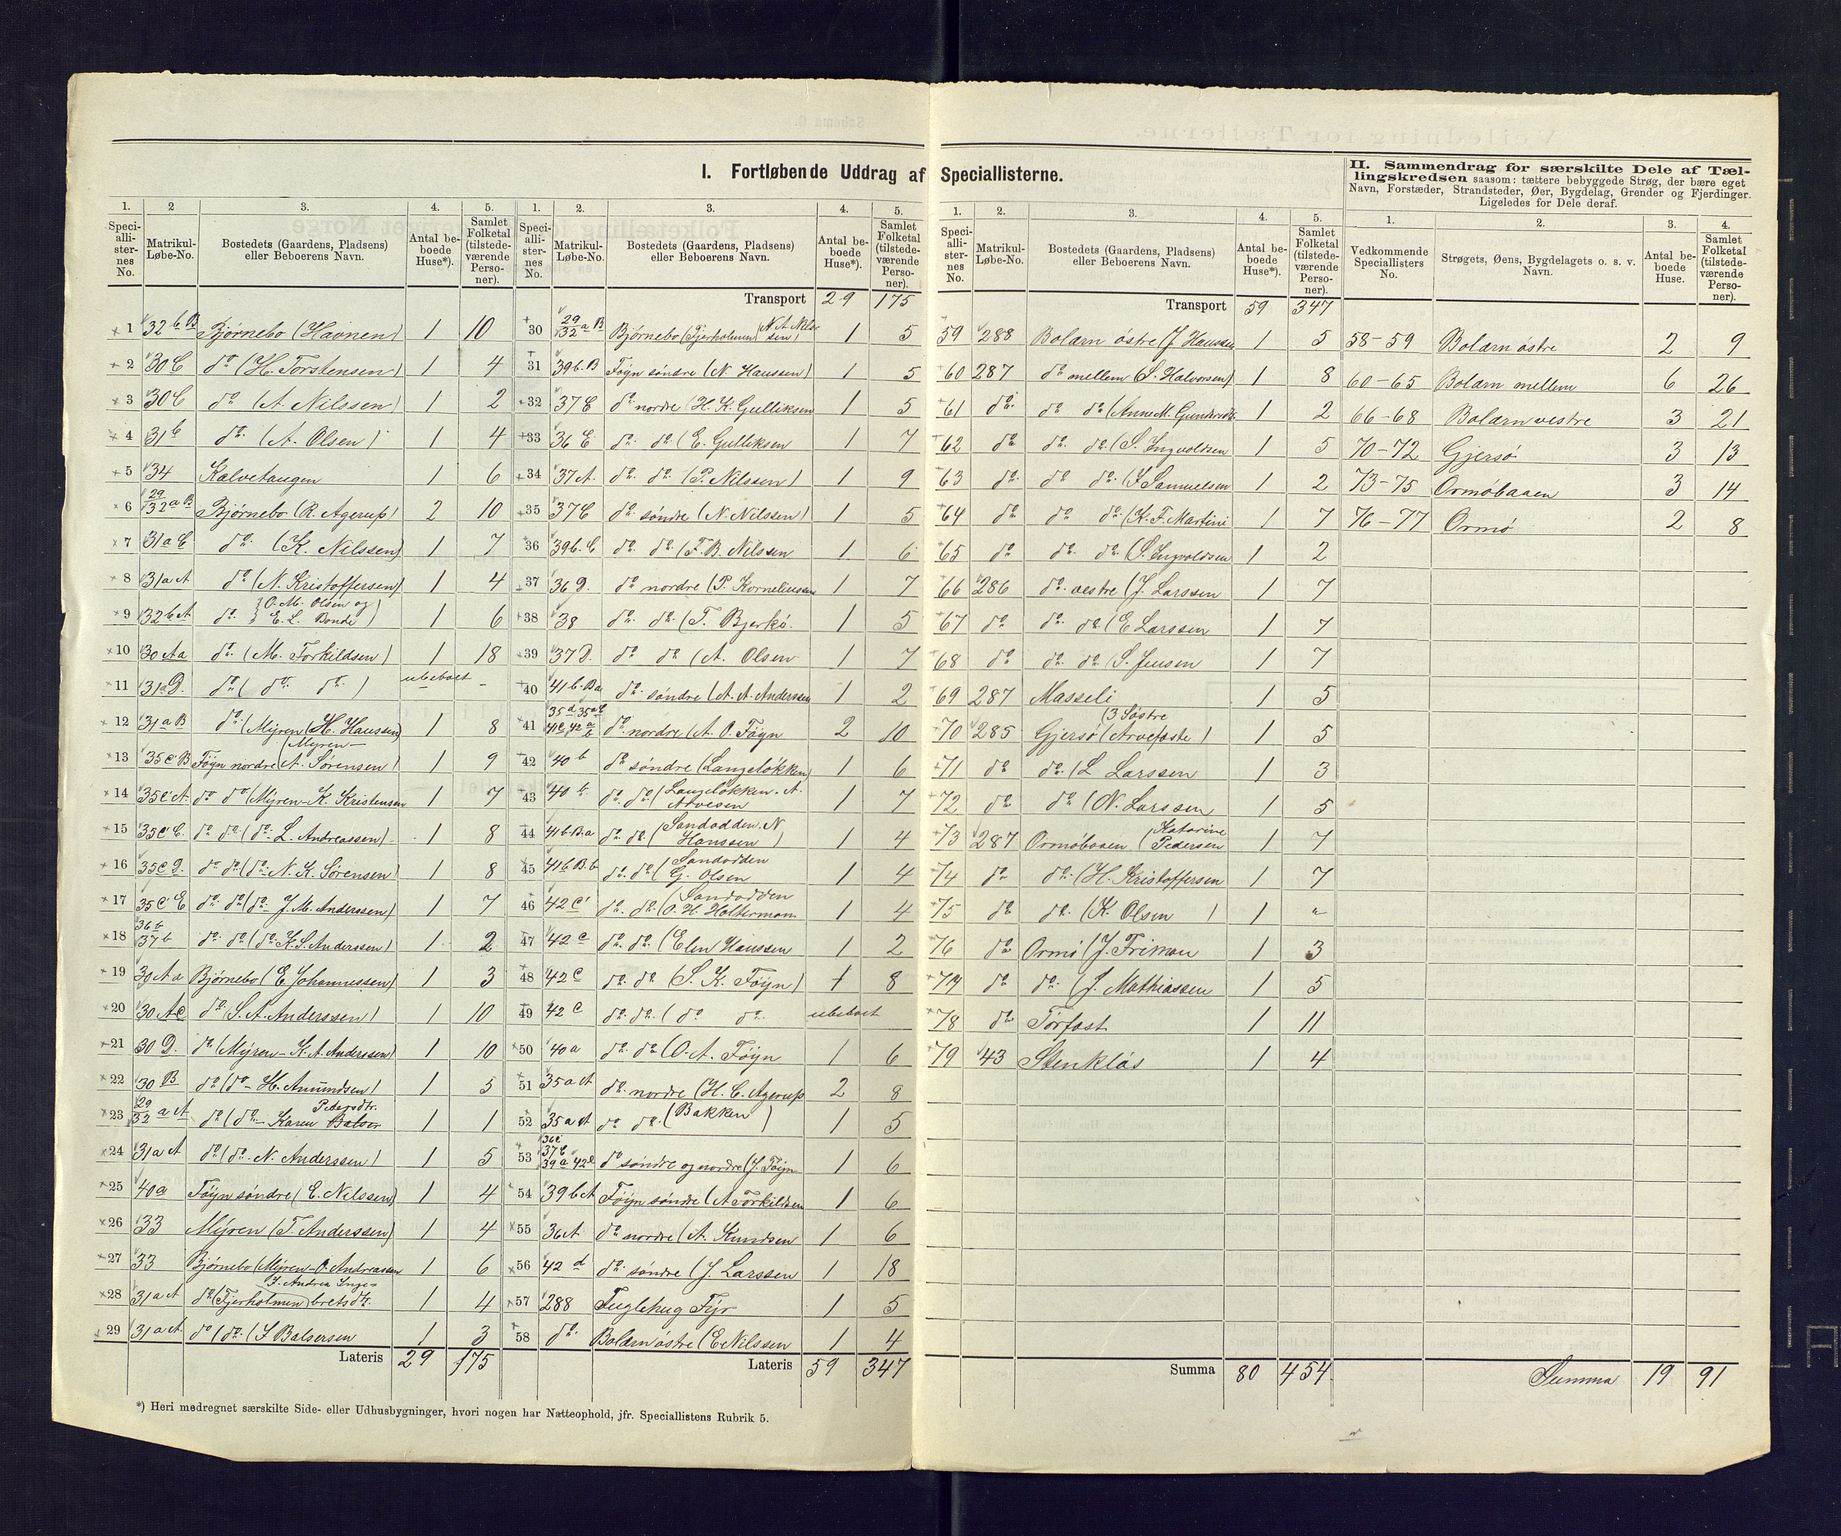 I. Fortløbende Uddrag af Speciallisterne.
1. Speciallisternes No. | 2 Matrikul-Løbe-No. | 3. Bostedets (Gaardens, Pladsens) eller Beboerens Navn. | 4. Antal beboede Huse*). | 5. Samlet Folketal (tilstedeværende Personer).
1 | 32 b B | Bjørnebo (Havnen) | 1 | 10
2 | 30 C | do (H. Torstensen) | 1 | 4
3 | 30 C | do (A. Nilssen) | 1 | 2
4 | 31 b | do. (A. Olsen) | 1 | 4
5 | 34 | Kalvetangen | 1 | 6
6 | 29/32 a B | Bjørnebo (R. Agerup) | 2 | 10
7 | 31 a C | do. (K. Nilssen) | 1 | 7
8 | 31 a A | do (N. Kristoffersen) | 1 | 4
9 | 32 b A | do. (O. M. Olsen og E. L. Bonde) | 1 | 6
10 | 30 Aa | do. (M. Torkildsen) | 1 | 18
11 | 31 a D. | do. (do. do.) | ubeboet | -
12 | 31 a B | do. (Mýren (H. Hanssen) | 1 | 8
13 | 35 c B | Föÿn nordre (Mýren— A. Sørensen) | 1 | 9
14 | 35 c A | do do (Mýren- K. Kristensen | 1 | 7
15 | 35 c C. | do do. (do. L. Andreassen) | 1 | 8
16 | 35 c D. | do do (do- N. K. Sørensen) | 1 | 8
17 | 35 c E | do do (do- J. M. Anderssen) | 1 | 7
18 | 36 b 37 b | do. do (do K. S. Anderssen) | 1 | 2
19 | 30 A a | Bjørnebo (E. Johannessen) | 1 | 3
20 | 30 A c | do. S. A. Anderssen) | 1 | 10
21 | 30 D. | do (Mýren- K. A. Anderssen) | 1 | 10
22 | 30 B | do (do- H. Amundsen) | 1 | 5
23 | 29/32 a A | do (do- Karen Pedersdtr. Balver | 1 | 1
24 | 31 a A | do (do- N. Anderssen) | 1 | 5
25 | 40 a | Föÿn søndre (E. Nilssen) | 1 | 4
26 | 33 | Mýren (T. Anderssen) | 1 | 4
27 | 33 | Bjørnebo (Mýren- O. Andreassen | 1 | 6
28 | 31 a A | do (Fjerholmen) J. Andrea Ingebretsdtr. | 1 | 4
29 | 31 a A | do (do. (J. Balsersen | 1 | 3
Lateris | 29 | 175
1. Speciallisternes No. | 2. Matrikul-Løbe-No. | 3. Bostedets (Gaardens, Pladsens) eller Beboerens Navn. | 4. Antal beboede Huse*). | 5. Samlet Folketal (tilstedeværende Personer).
Transport | 29 | 175
30 | 29/32 a B | Bjørnebo (Fjerholmen) N. A. Nilssen) | 1 | 5
31 | 39 b. B | Föÿn søndre (N. Hanssen) | 1 | 5
32 | 37 C | do nordre (H. K. Gulliksen | 1 | 5
33 | 36 C | do. do. (E. Gulliksen | 1 | 7
34 | 37 A. | do. do. (P. Nilssen) | 1 | 9
35 | 37 C | do. søndre (N. Nilssen) | 1 | 5
36 | 39 b. C | do. do. (F. B. Nilssen | 1 | 6
37 | 36 D. | do nordre (P. Korneliussen | 1 | 7
38 | 38 | do. do. (T. Bjerkö. | 1 | 5
39 | 37 D. | do do (A. Olsen | 1 | 7
40 | 41 b. Ba | do. søndre (A. A. Anderssen | 1 | 2
41 | 35 d 35 a C 41 c 42 a | do. nordre (A. O. Föÿn | 2 | 10
42 | 40 b | do søndre (Langeløkken) | 1 | 6
43 | 40 b | do. do (Langeløkken. A. Arvesen | 1 | 7
44 | 41 b. Ba | do. do. (Sandodden. N Hanssen) | 1 | 4
45 | 41 b. B. b | do. do (Sandodden G. Olsen | 1 | 4
46 | 42 c | do. do. (Sandodden O. H. Holterman | 1 | 4
47 | 42 c | do. do. (Elen Hanssen | 1 | 2
48 | 42 c | do. do (S. K. Föÿn) | 1 | 8
49 | 42 c | do. do. (do do. | ubeboet
50 | 40 a | do. do (O. A. Föÿn | 1 | 6
51 | 35 a A | do. nordre (H. C. Agerup | 2 | 8
52 | 35 a A | do do. (Bakken) | 1 | 5
53 | 36 c 37 C 39 a 42 c | do søndre og nordre (J. Föÿn | 1 | 6
54 | 39 b A | Föÿn søndre (A Torkildsen | 1 | 6
55 | 36 A | do nordre (A. Knudsen | 1 | 6
56 | 42 d | do. søndre (J. Larssen | 1 | 18
57 | 288 | Fuglehug Fÿr | 1 | 5
58 | do. | Bolærn østre (E. Nilssen | 1 | 4
Lateris | 59 | 347
*) Heri medregnet særskilte Side- eller Udhusbygninger, hvori nogen har Natteophold, jfr. Speciallistens Rubrik 5.
1. Speciallisternes No. | 2. Matrikul-Løbe-No. | 3. Bostedets (Gaardens, Pladsens) eller Beboerens Navn. | 4. Antal beboede Huse*). | 5. Samlet Folketal (tilstedeværende Personer).
Transport | 59 | 347
59 | 288 | Bolærn østre (J. Hanssen | 1 | 5
60 | 287 | do mellem (S. Halvorsen) | 1 | 8
61 | do. | do do (Anne M. Gundersdtr | 1 | 2
62 | do | do. do (S. Ingvoldsen | 1 | 5
63 | do | do do. (J Samuelsen | 1 | 2
64 | do | do do (K. F. Martini | 1 | 7
65 | do | do. do. (S. Ingvoldsen | 1 | 2
66 | 286 | do. vestre (J. Larssen | 1 | 7
67 | do | do. do. (E Larssen | 1 | 7
68 | do. | do. do (S. Jensen | 1 | 7
69 | 287 | Masseli | 1 | 5
70 | 285 | Gjersø (3 Søstre (Arvefaste) | 1 | 5
71 | do | do. (L Larssen | 1 | 3
72 | do | do (N. Larssen | 1 | 5
73 | 287 | Ormøbaaen (Katarine Pedersen | 1 | 7
74 | do. | do. (H. Kristoffersen | 1 | 7
75 | do | do. (K. Olsen ) | 1 | "
76 | do | Ormø (J. Friman | 1 | 3
77 | do | do. (J. Mathiassen | 1 | 5
78 | do | Tørfast | 1 | 11
79 | 43 | Stenkløs | 1 | 4
Summa | 80 | 454
II. Sammendrag for særskilte Dele af Tællingskredsen saasom: tættere bebyggede Strøg, der bære eget Navn, Forstæder, Strandsteder, Øer, Bygdelag, Grender og Fjerdinger. Ligeledes for Dele deraf.
1. Vedkommende Speciallisters No. | 2. Strøgets, Øens, Bygdelagets o. s. v. Navn. | 3. Antal beboede Huse. | 4. Samlet Folketal (tilstedeværende Personer).
58-59 | Bolærn østre | 2 | 9
60-65 | Bolærn mellem | 6 | 26
66-68 | Bolærn vestre | 3 | 21
70-72 | Gjersø | 3 | 13
73-75 | Ormøbaaen | 3 | 14
76-77 | Ormø | 2 | 8
Summa | 19 | 91